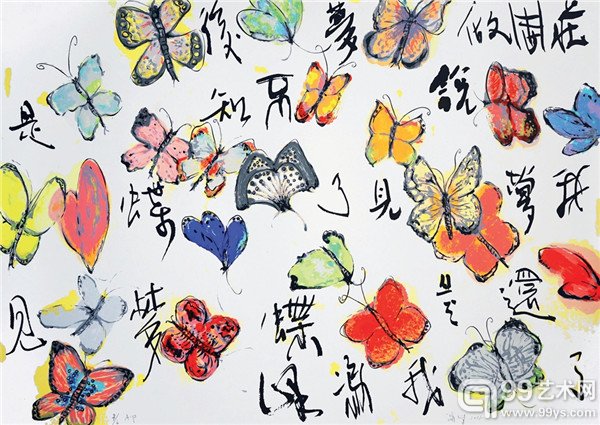 莊周做夢後
說不知是
我夢見了蝶
還是蝶夢見
了我
99艺术网
www.99ys.com